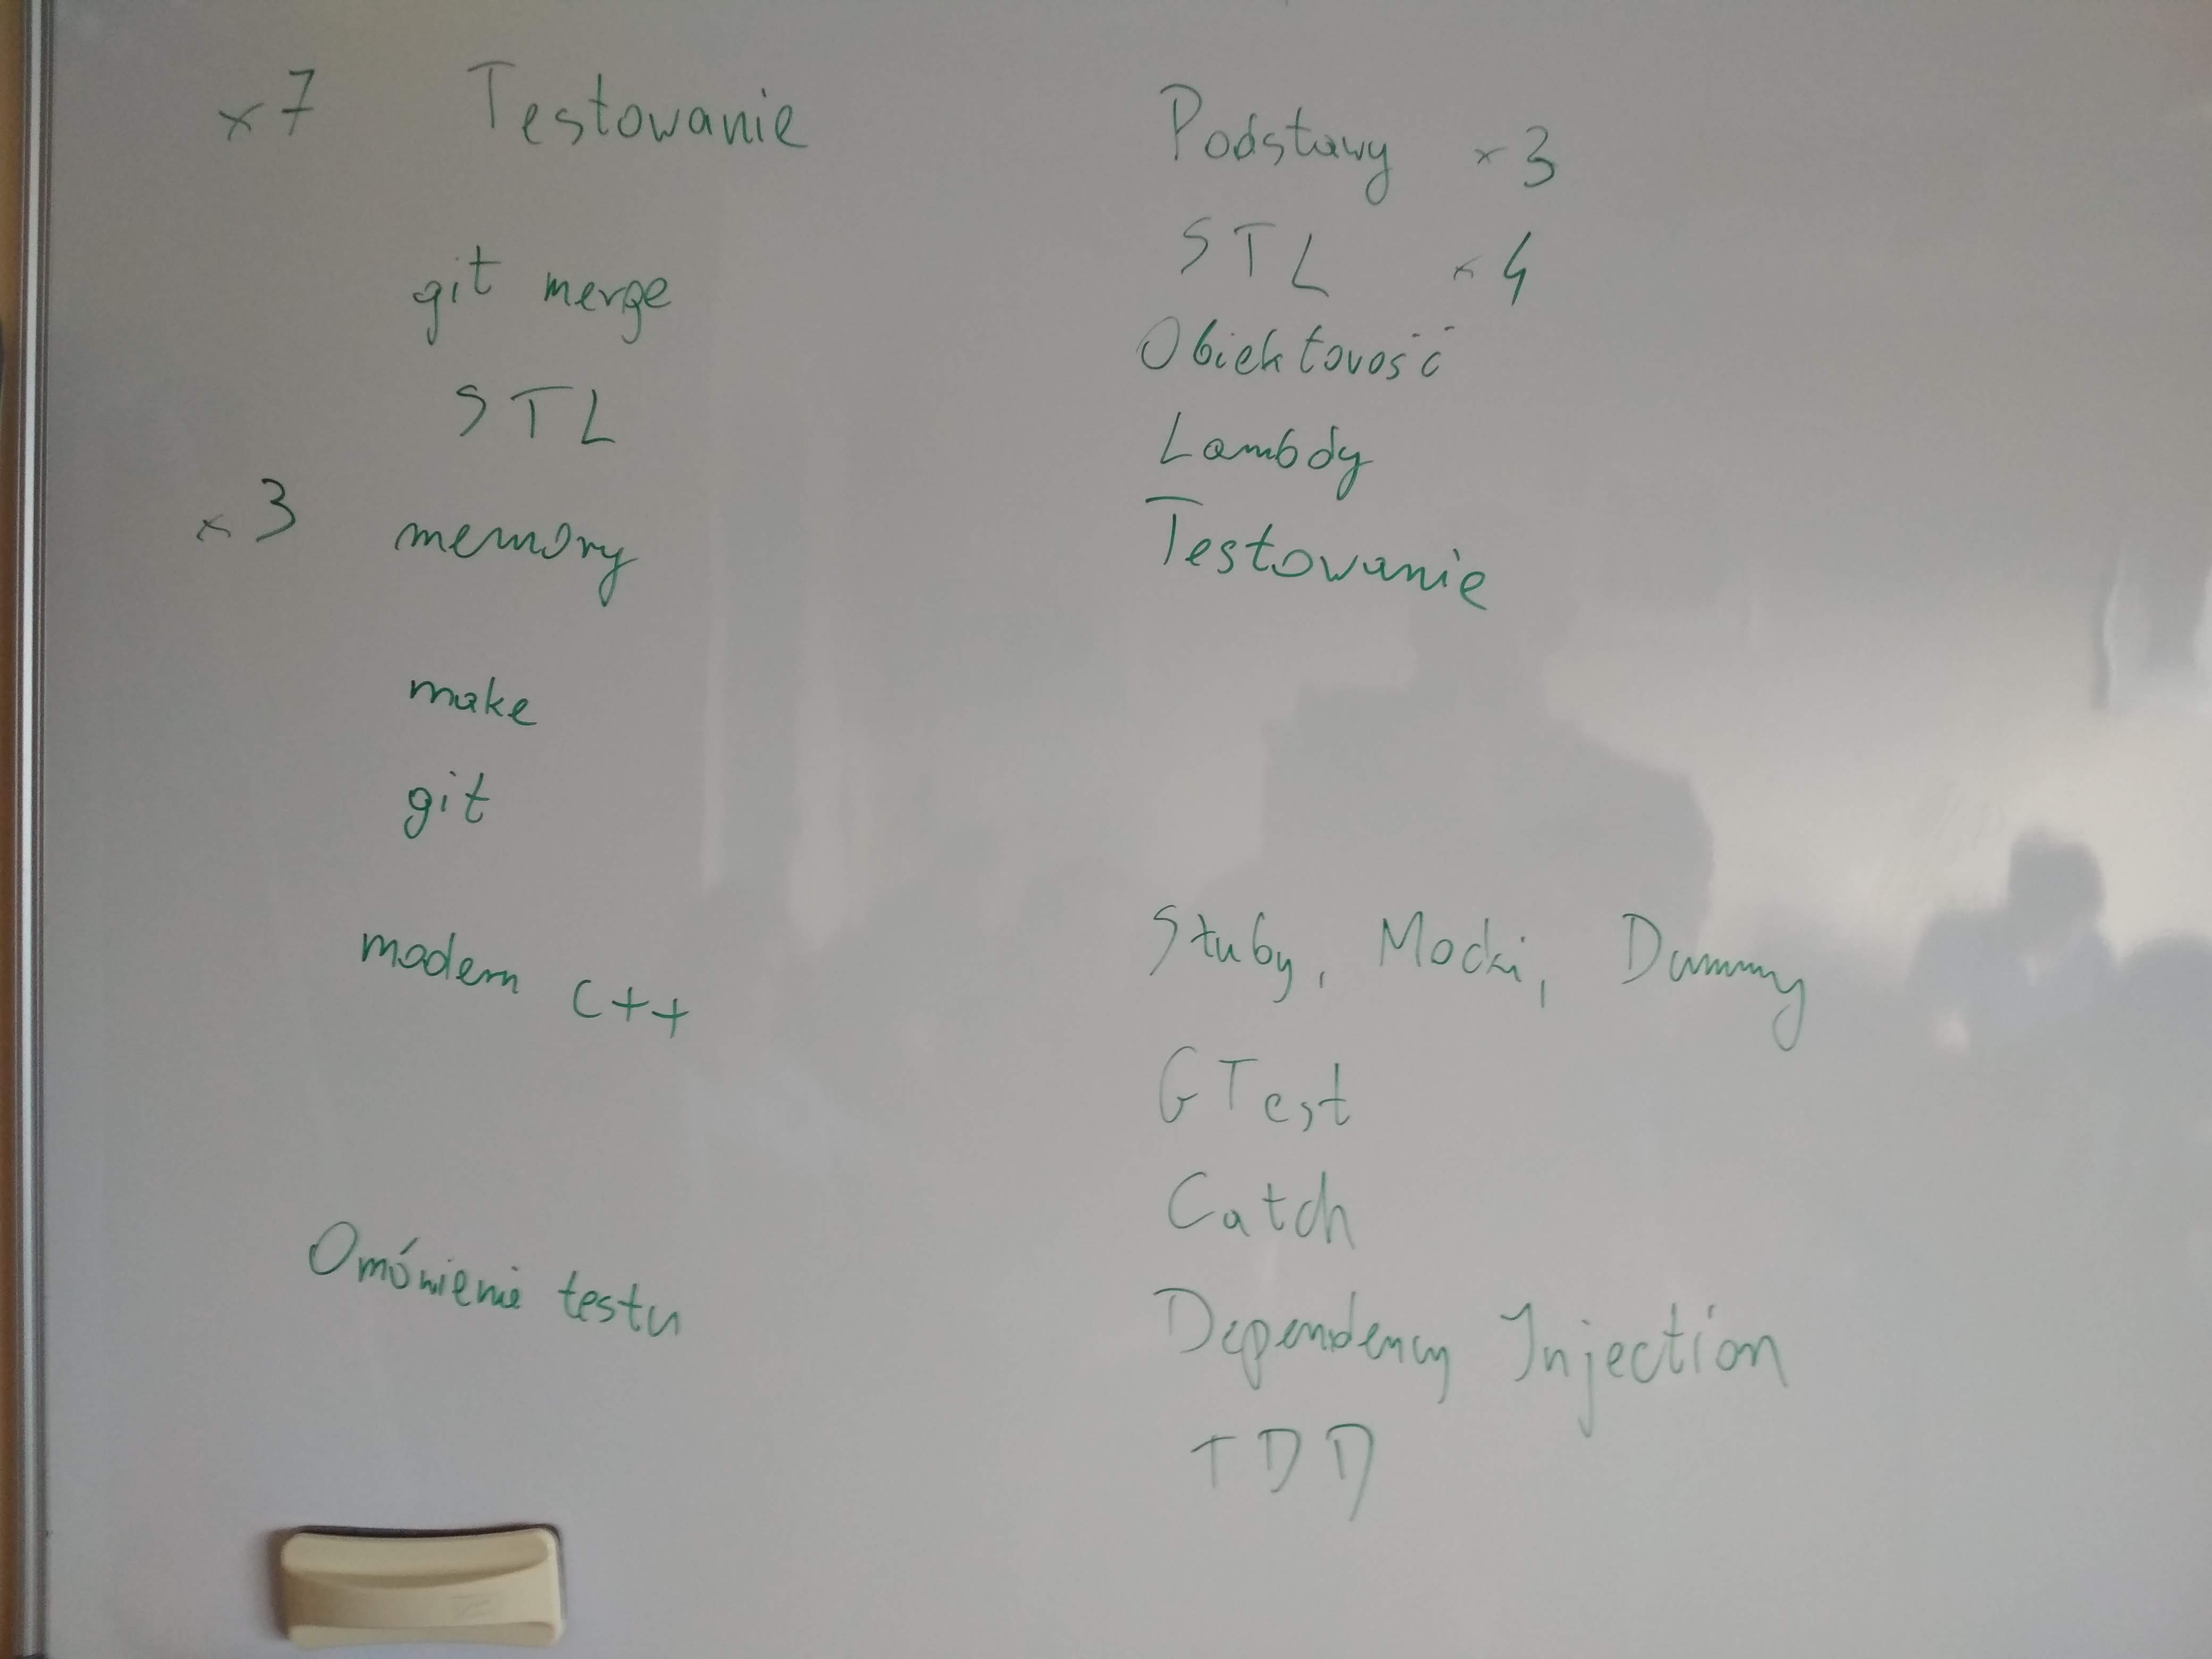 x7 Testowanie
git merge
STL
x3 memory
make
git
modern C++
Omówienie testu
Podstawy x3
STL x4
Obiektowość
Lambdy
Testowanie
Stuby, Mocki, Dummy
GTest
Catch
Dependency Injection
TDD